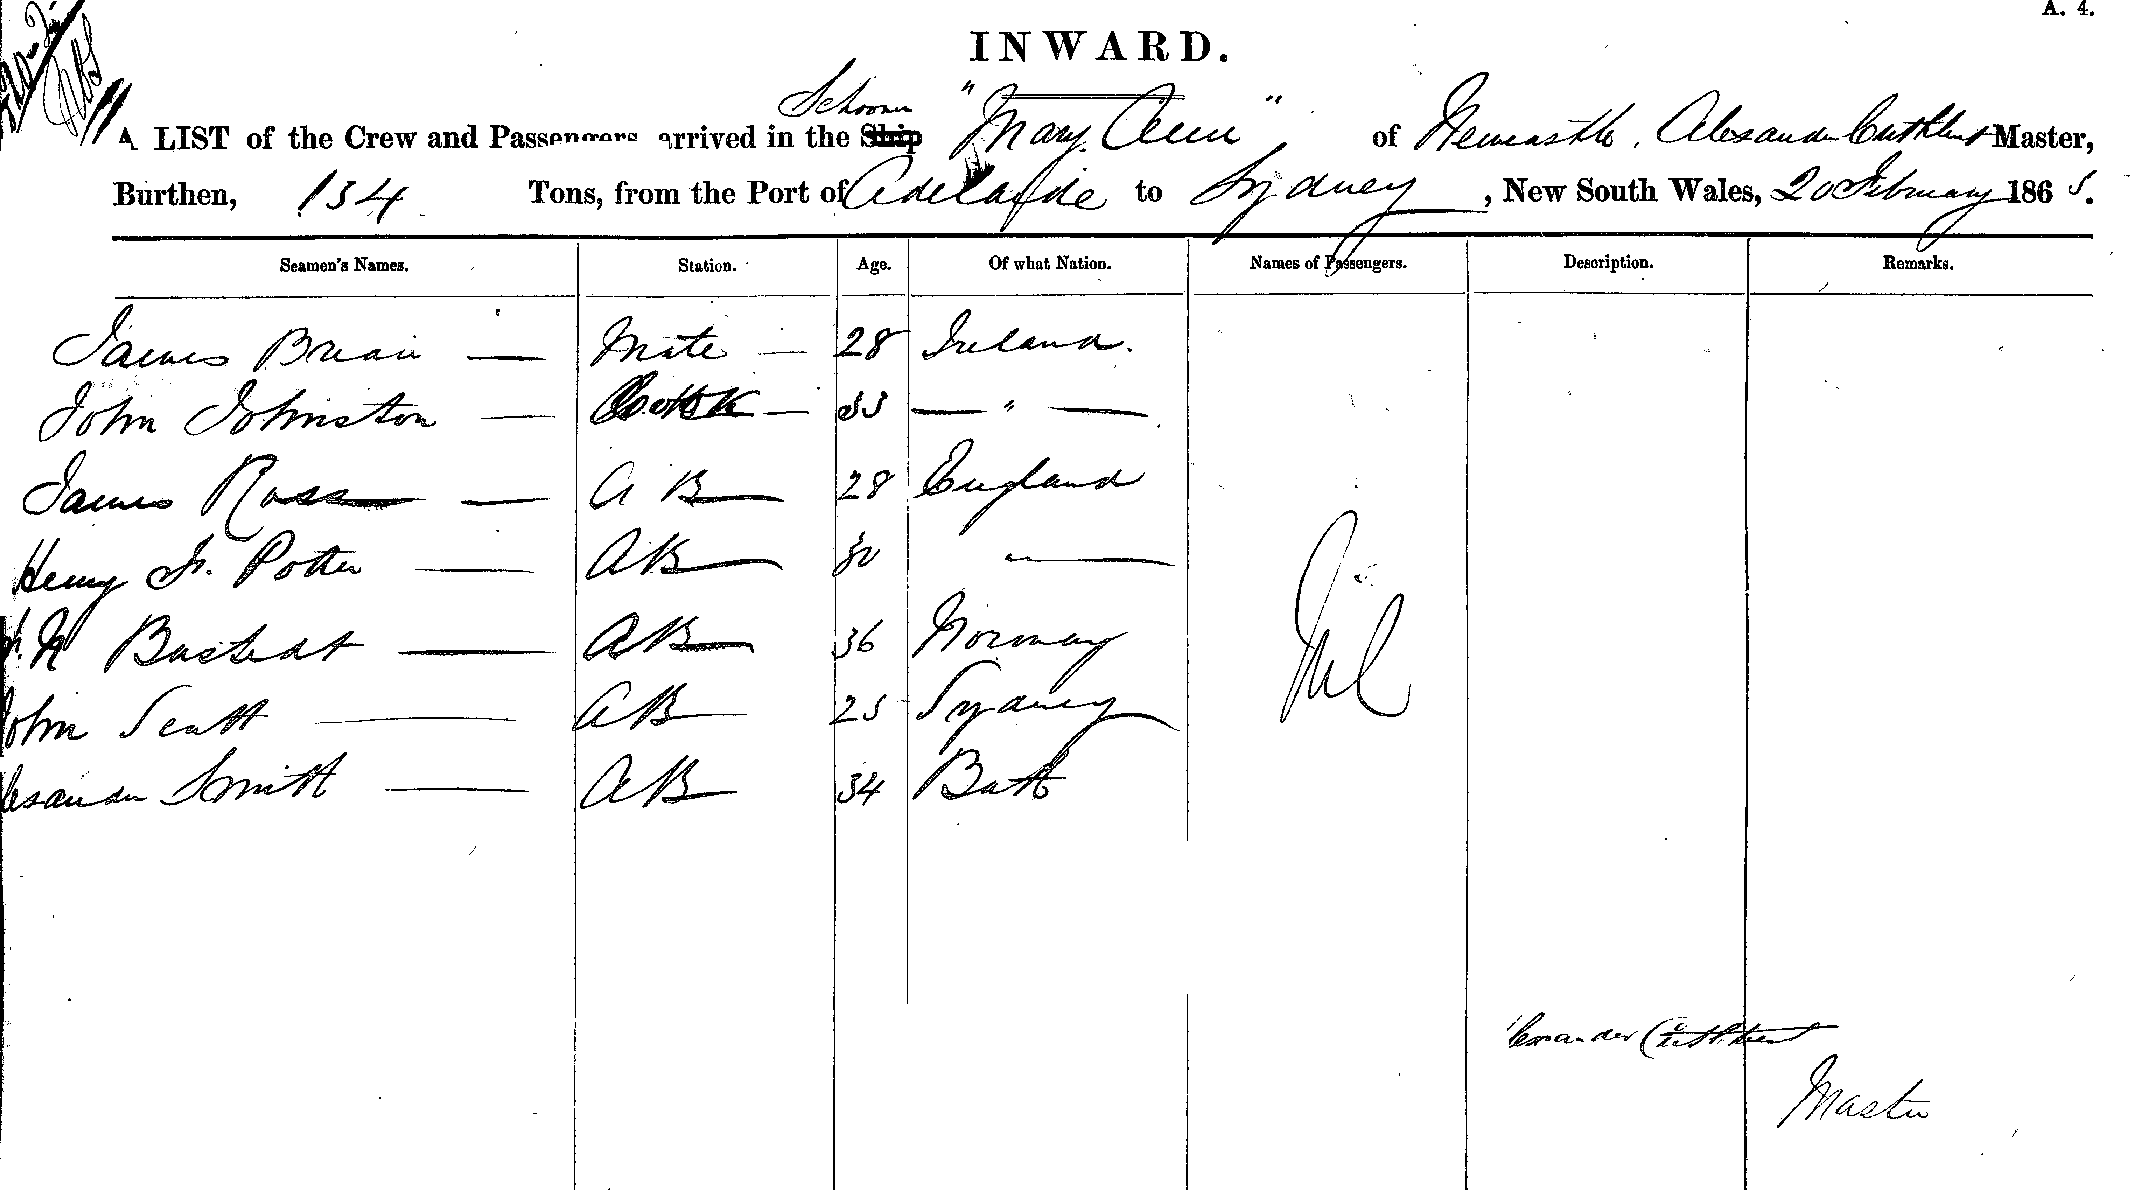 A. 4.
INWARD.
Schooner
A LIST of the Crew and Passengers arrived in the Ship "Mary Ann" of Newcastle, Alexander Cuthbert Master,
Burthen, 134 Tons, from the Port of Adelaide to Sydney, New South Wales, 20 February 1865.
Seamen's Names. Station. Age. Of what Nation. Names of Passengers. Description. Remarks.
James Brian — Mate — 28 Ireland.
John Johnston — Cook — 33 — " —
James Ross — A B 28 England
Henry Potter — AB 30 " —
AB 36 Norway
John Scott — AB 25 Sydney
Alexander Smith — AB 34 Bath
Nil
Alexander Cuthbert
Master